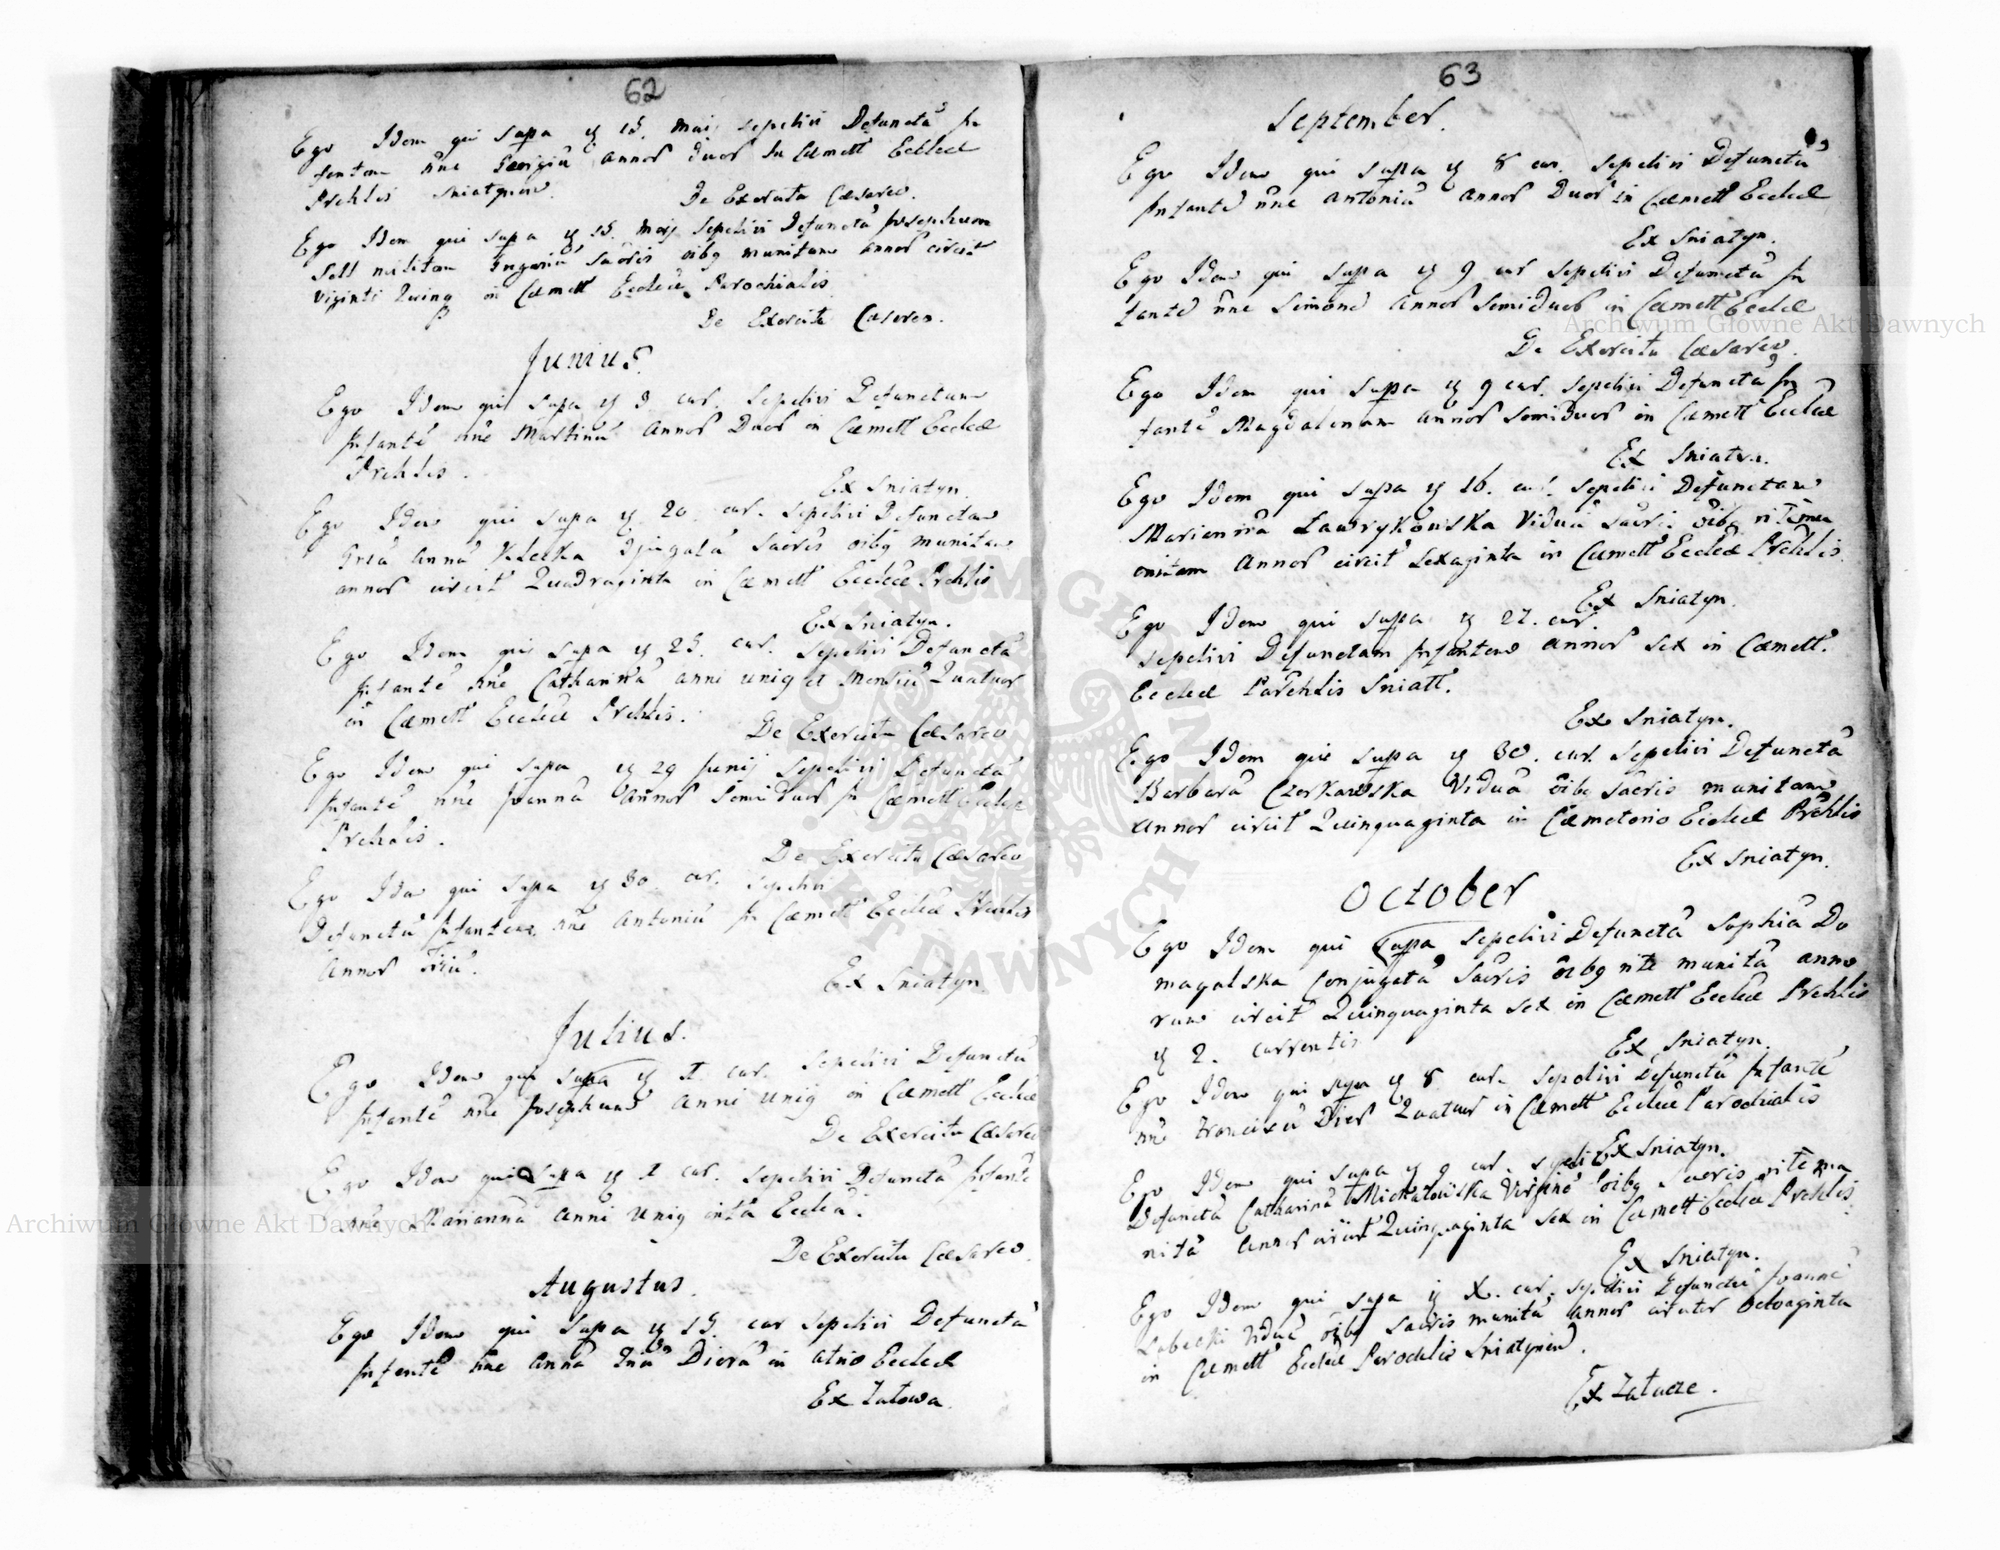 62
Ego Idem qui supa ӱ 15. Maij sepelivi Defunctū In
fantem nne annor duor In Cæmett Eccleæ
Prchlis Sniatynen.
De Exercitu Cæsareo.
Ego Idem qui supa ӱ 15. Maij Sepelivi Defunctū Josephum
militem sacris oibg munitum annor circit
viginti Quing in Cæmett Eccleæ Parochialis
De Exercitu Cæsareo.
Junius.
Ego Idem qui supa ӱ 3. cur. Sepelivi Defunctum
Infantē nne Martinū annor Duor in Cæmett Eccleæ
Prchlis.
Ex Sniatyn.
Ego Idem qui supa ӱ 20. cur. Sepelivi Defunctam
Anna sacris oibg munitam
annor circit Quadraginta in Cæmett Eccleæ Prchlis
Ex Sniatyn.
Ego Idem qui supa ӱ 25. cur. Sepelivi Defunctā
Infantē nne Catharinā anni unig et Mensiū Quatuor
in Cæmett Eccleæ Prchlis.
De Exercitu Cæsareo
Ego Idem qui supa ӱ 29 Junij Sepelivi Defunctā
Infantē nne Joannā annor Semiduor In Cæmett Eccleæ
Prchlis.
De Exercitu Cæsareo
Ego Idem qui supa ӱ 30. cur. Sepelivi
Defunctū Infantem nne Antoniū in Cæmett Eccleæ Prchlis
annor Triū.
Ex Sniatyn
Julius.
Ego Idem qui supa ӱ 1. cur. Sepelivi Defunctū
Infantē nne Josephum anni unig in Cæmett Eccleæ
De Exercitu Cæsareo
Ego Idem qui supa ӱ 1 cur. Sepelivi Defunctā Infantē
nne Mariannā anni unig Eccleā.
De Exercitu Cæsareo.
Augustus.
Ego Idem qui supa ӱ 15. cur Sepelivi Defunctā
Infantē nne Annā Dierū in atrio Eccleæ
Ex
63
September.
Ego Idem qui supa ӱ 8 cur. Sepelivi Defunctū
Infantē nne Antoniū annor Duor in Cæmett Eccleæ
Ex Sniatyn.
Ego Idem qui supa ӱ 9 cur Sepelivi Defunctū In
fantē nne Simonē annor Semiduor in Cæmett Eccleæ
De Exercitu Cæsareo.
Ego Idem qui supa ӱ 9 cur. Sepelivi Defunctā In
fantē Magdalenam annor Semiduor in Cæmett Eccleæ
Ex Sniatyn.
Ego Idem qui supa ӱ 16. cur. Sepelivi Defunctam
Mariannā Lawrykowska Viduā sacris oibg ritē mu
nitam Annor circit Sexaginta in Cæmett Eccleæ Prchlis
Ex Sniatyn.
Ego Idem qui supa ӱ 27. cur.
Sepelivi Defunctam Infantem annor Sex in Cæmett.
Eccleæ Parchlis Sniatt.
Ex Sniatyn.
Ego Idem qui supa ӱ 30. cur. Sepelivi Defunctā
Barbarā Czerkawska Viduā oibg sacris munitam
annor circit Quinquaginta in Cæmeterio Eccleæ Prchlis
Ex Sniatyn.
October
Ego Idem qui supa Sepelivi Defunctā Sophiā Do
magalska Conjugatā Sacris oibg rite munitā anno
rum circit Quinquaginta Sex in Cæmett Eccleæ Prchlis
ӱ 2. currentis
Ex Sniatyn.
Ego Idem qui supa ӱ 8. cur. Sepelivi Defunctū Infantē
nne Franciscū Dier Quatuor in Cæmett Eccleæ Parochialis
Ex Sniatyn.
Ego Idem qui supa ӱ 9 cur sepelivi
Defunctā Catharinā Michałowska Virginē oibg Sacris ritē mu
nitā annor circit Quinquaginta Sex in Cæmett Eccleæ Prchlis
Ex Sniatyn.
Ego Idem qui supa ӱ X. cur. Sepelivi Defunctū Joannē
Viduū oibg sacris munitū annor circiter octoaginta
in Cæmett Eccleæ Parochlis Sniatynien.
Ex
Archiwum Główne Akt Dawnych
Archiwum Główne Akt Dawnych
ARCHIWUM GŁÓWNE AKT DAWNYCH